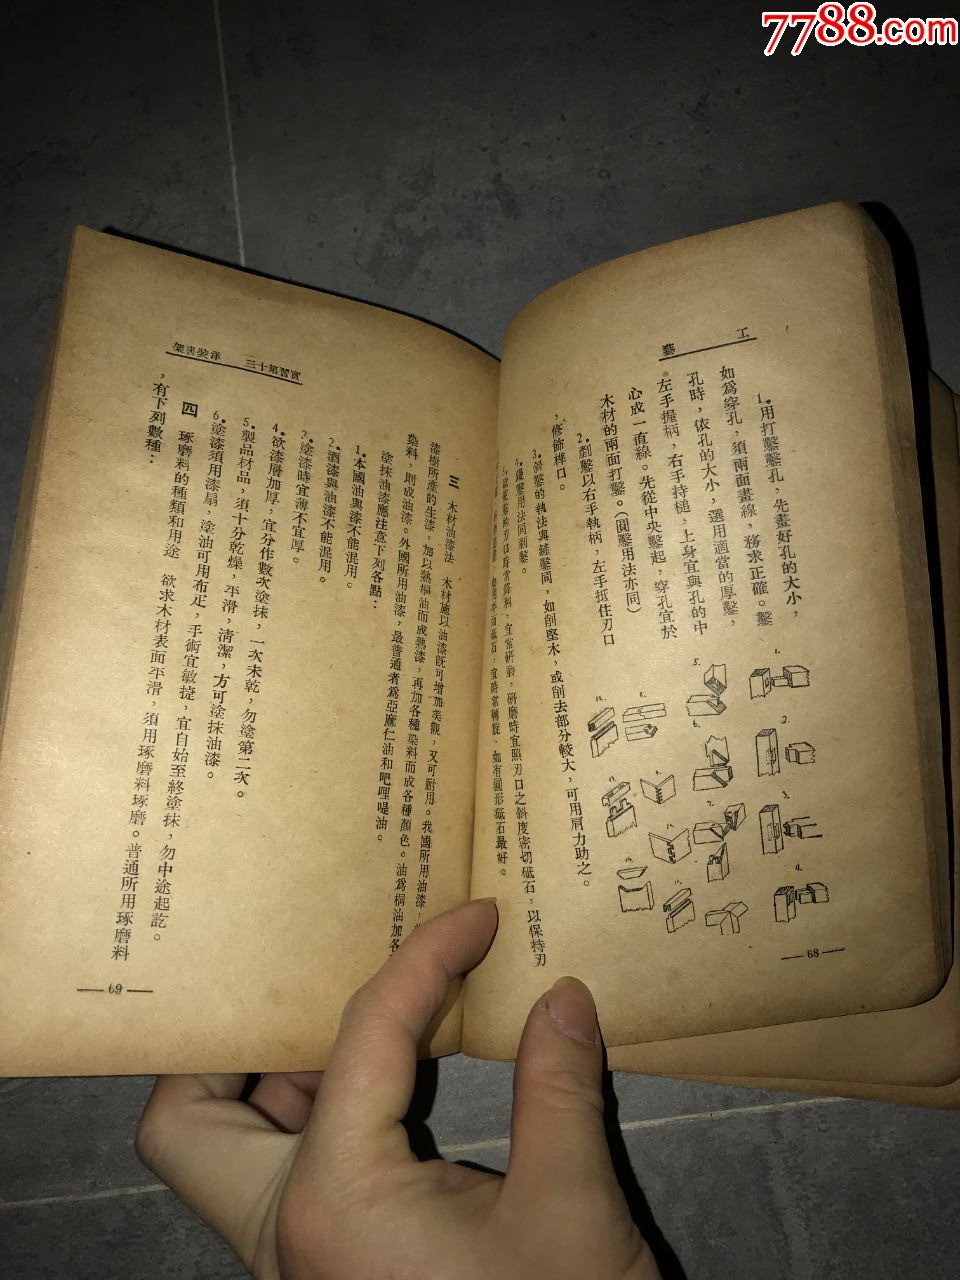 7788.com
工藝
1.用打鑿鑿孔，先畫好孔的大小，
如爲穿孔，須兩面畫線，務求正確。鑿
孔時，依孔的大小，選用適當的厚鑿，
左手握柄，右手持槌，上身宜與孔的中
心成一直線。先從中央鑿起，穿孔宜於
木材的兩面打鑿。（圓鑿用法亦同）
2.剷鑿以右手執柄，左手抵住刃口
，修飾榫口。
3.斜鑿的執法與剷鑿同，如削堅木，或削去部分較大，可用肩力助之。
宜常研磨，研磨時宜照刃口之斜度密切砥石，以保持刃
宜時常轉旋，如有圓形砥石最好。
1.
2.
3.
4.
5.
6.
7.
68
實習第十三　洋裝書架
三　木材油漆法　木材施以油漆既可增加美觀，又可耐用。我國所用油漆，
漆樹所產的生漆，加以熟桐油而成熟漆，再加各種染料而成各種顏色。油爲桐油加各
染料，則成油漆。外國所用油漆，最普通者爲亞麻仁油和吧哩嗁油。
塗抹油漆應注意下列各點：
1.本國油與漆不能混用。
2.酒漆與油漆不能混用。
3.塗漆時宜薄不宜厚。
4.欲漆層加厚，宜分作數次塗抹，一次未乾，勿塗第二次。
5.製品材品，須十分乾燥，平滑，清潔，方可塗抹油漆。
6.塗漆須用漆扇，塗油可用布疋，手術宜敏捷，宜自始至終塗抹，勿中途起訖。
四　琢磨料的種類和用途　欲求木材表面平滑，須用琢磨料琢磨。普通所用琢磨料
，有下列數種：
69